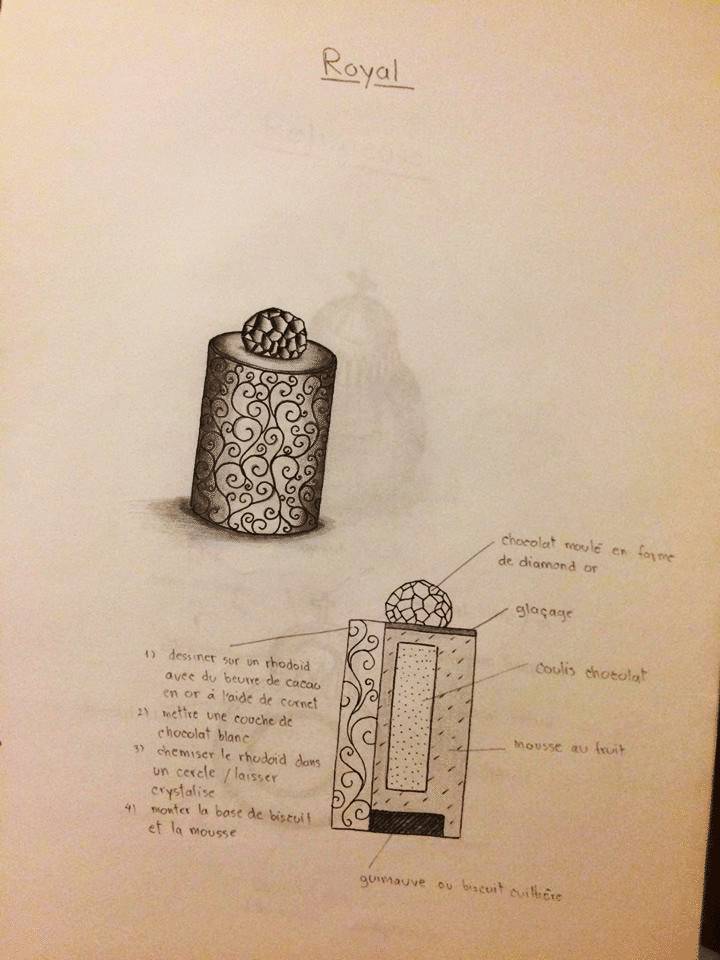 Royal
chocolat moulé en forme
de diamond or
glaçage
coulis chocolat
mousse au fruit
1) dessiner sur un rhodoid
avec du beurre de cacao
en or à l'aide de cornet
2) mettre une couche de
chocolat blanc
3) chemiser le rhodoid dans
un cercle / laisser
crystalise
4) monter la base de biscuit
et la mousse
guimauve ou biscuit cuillière